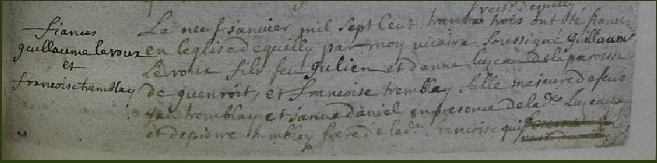 fiances
guillaume leroux
et
francoise tremblay
Le neuf janvier mil sept cent trente trois ont été fiancé
en leglise d equilly par moy vicaire soussigné guillaume
Leroux fils feu julien et danne lujeau de la paroisse
de guenroit, et francoise tremblay fille majeure de feu
jan tremblay et janne daniel en presence de lad. lujeau
et de pierre tremblay frere de lad. francoise qui